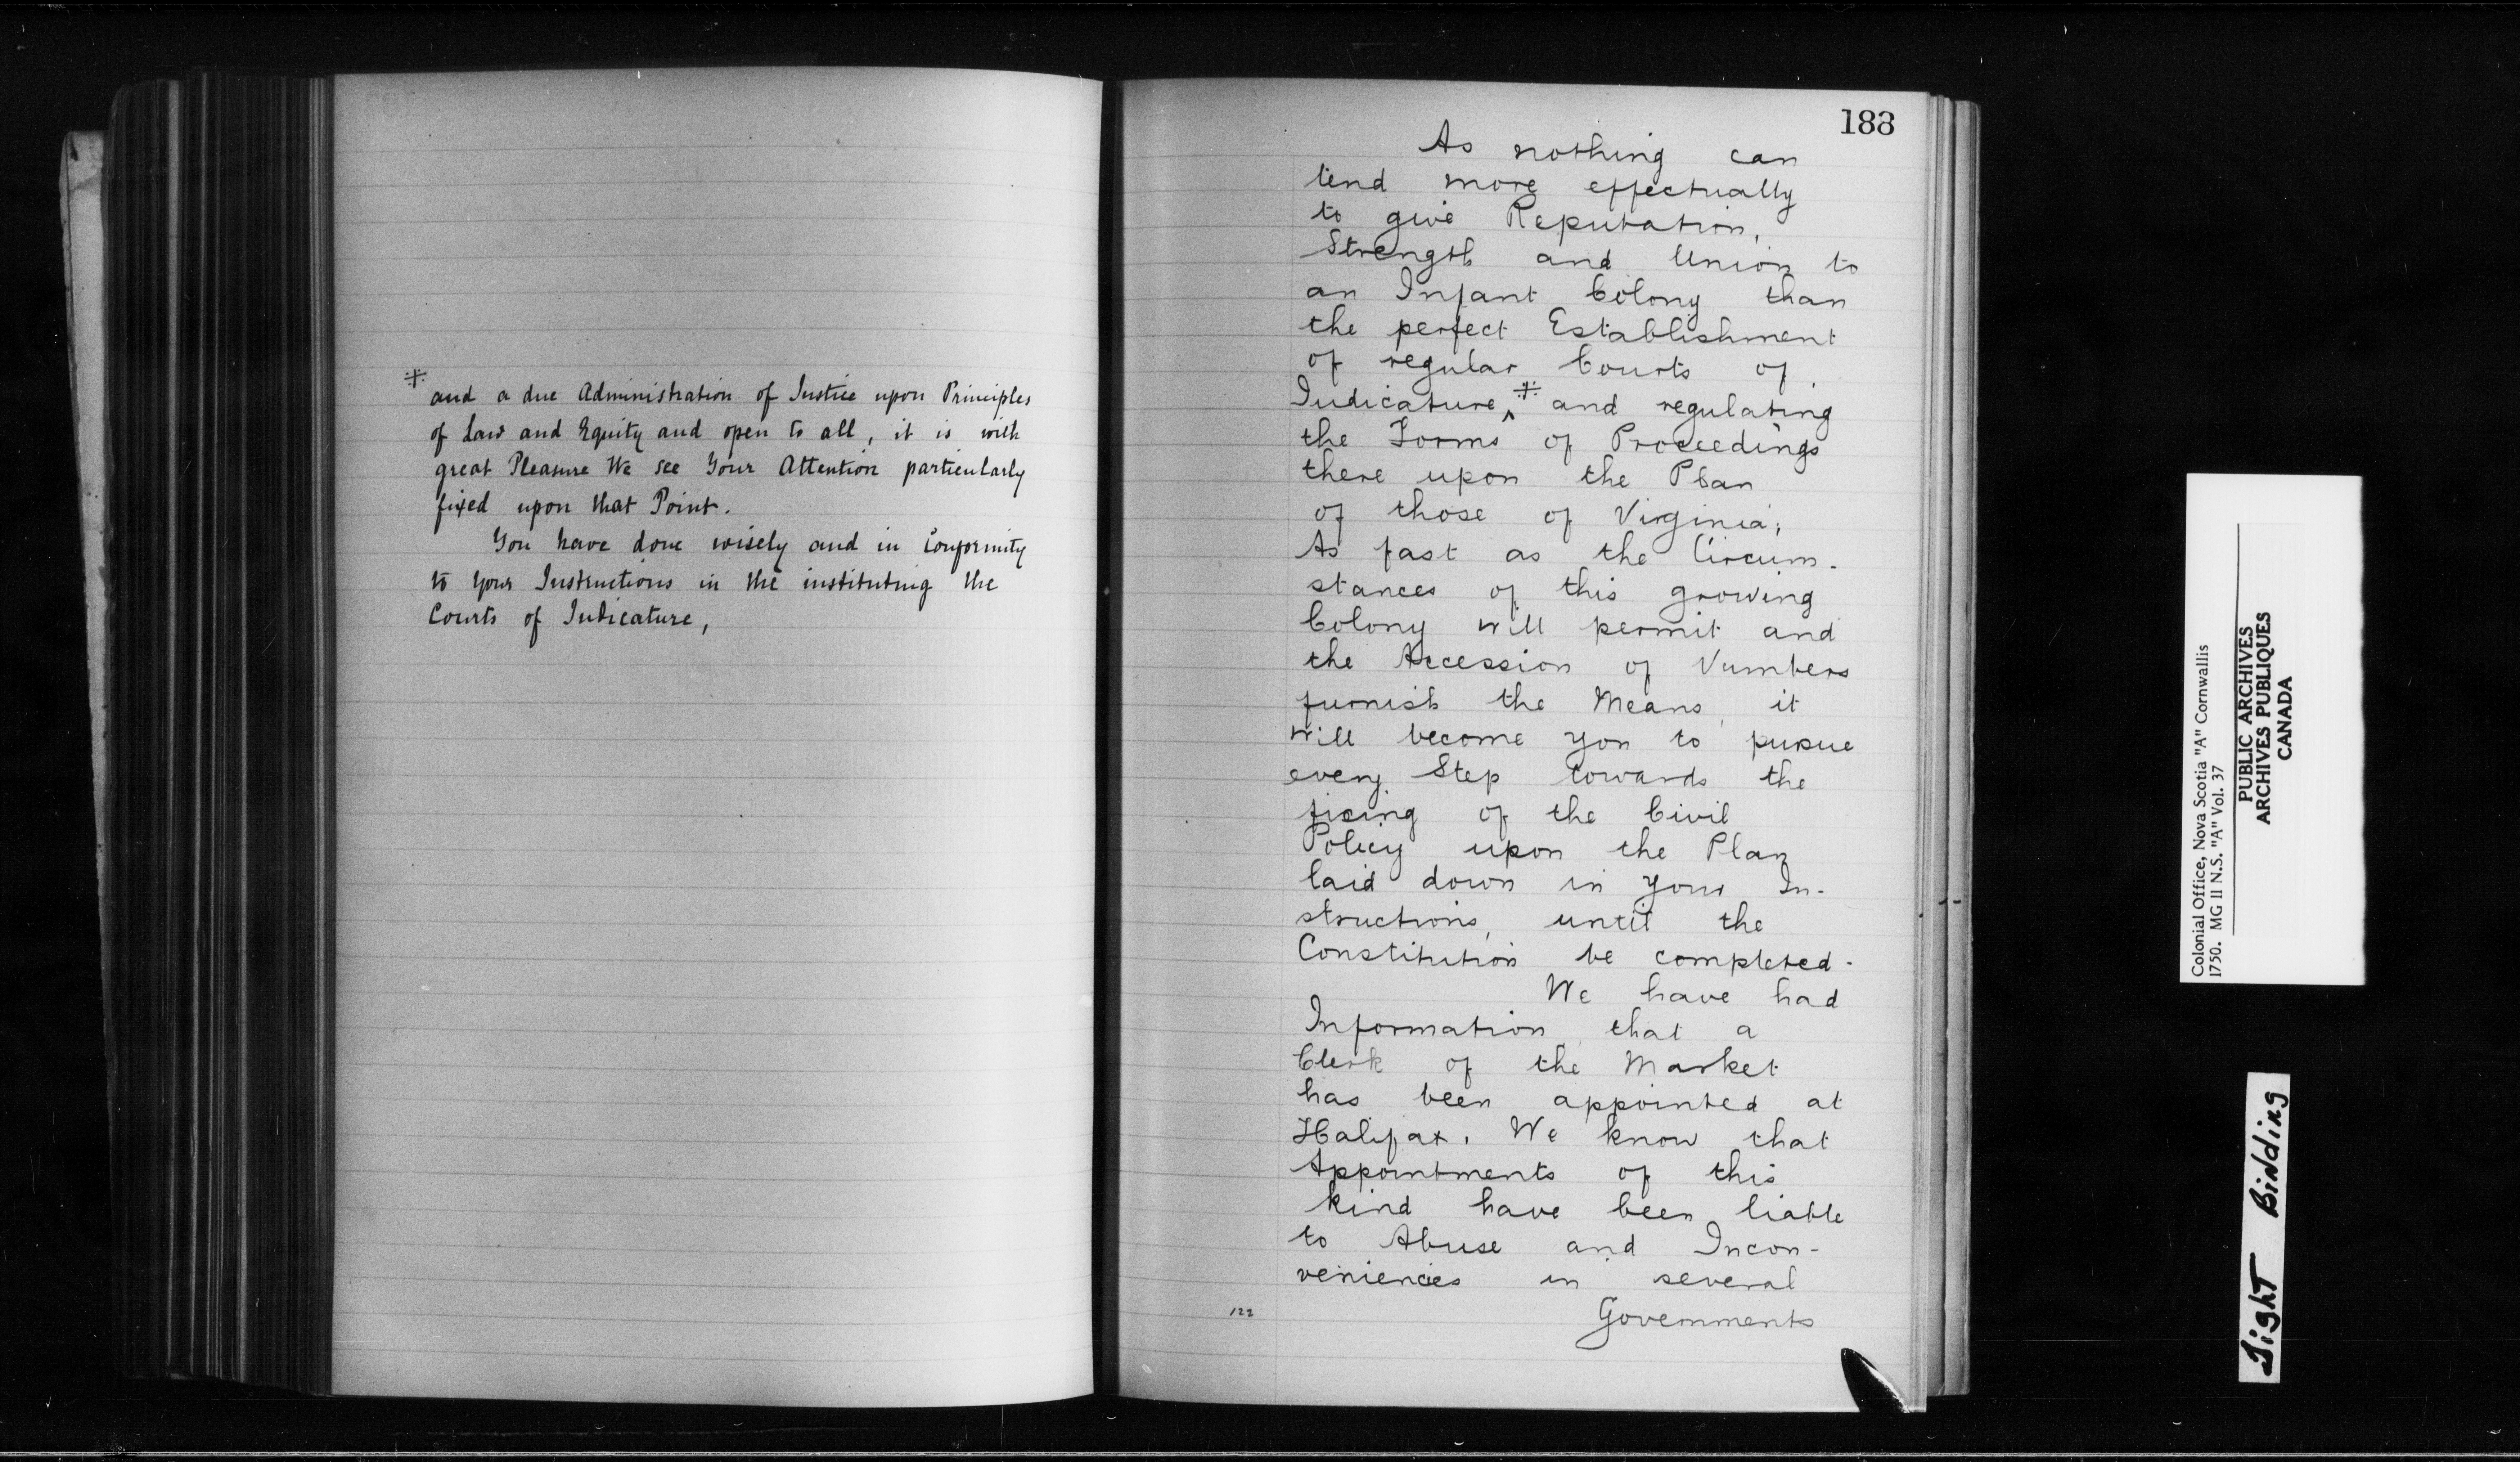 ⁜
and a due Administration of Justice upon Principles
of Law and Equity and open to all, it is with
great Pleasure We see Your Attention particularly
fixed upon that Point.
You have done wisely and in Conformity
to Your Instructions in the instituting the
Courts of Judicature,
183
As nothing can
tend more effectually
to give Reputation,
Strength and Union to
an Infant Colony than
the perfect Establishment
of regular Courts of
Judicature,⁜ and regulating
the Forms of Proceedings
there upon the Plan
of those of Virginia;
As fast as the Circum-
stances of this growing
Colony will permit and
the Accession of Numbers
furnish the Means, it
will become you to pursue
every Step towards the
fixing of the Civil
Policy upon the Plan
laid down in your In-
structions, until the
Constitution be completed.
We have had
Information that a
Clerk of the Market
has been appointed at
Halifax. We know that
Appointments of this
kind have been liable
to Abuse and Incon-
veniencies in several
122
Governments
Colonial Office, Nova Scotia "A" Cornwallis
1750. MG 11 N.S. "A" Vol. 37
PUBLIC ARCHIVES
ARCHIVES PUBLIQUES
CANADA
Tight Binding